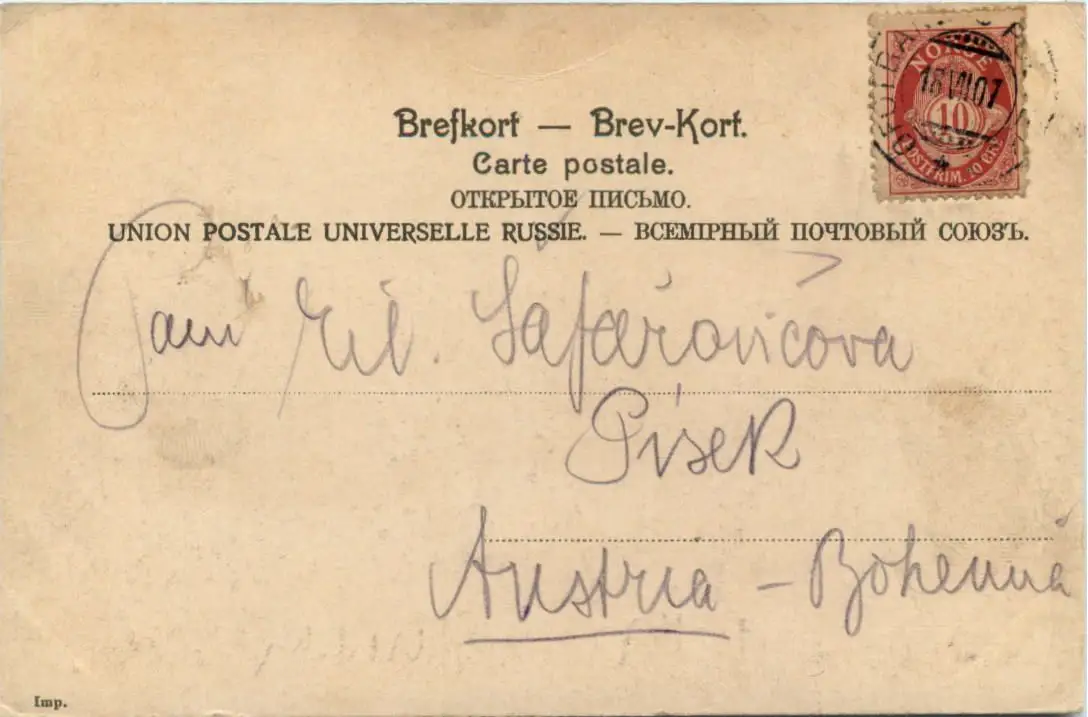 Brefkort — Brev-Kort.
Carte postale.
ОТКРЫТОЕ ПИСЬМО.
UNION POSTALE UNIVERSELLE RUSSIE. — ВСЕМІРНЫЙ ПОЧТОВЫЙ СОЮЗЪ.
NORGE
18 VII 07
10
POSTFRIM. 10 ØRE
Paní Eil. Šafařovičova
Písek
Austria – Bohemia
Imp.